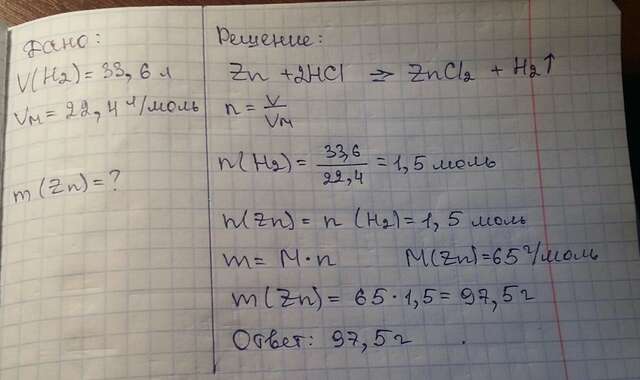 Дано:
V(H₂) = 33,6 л
Vм = 22,4 л/моль
m(Zn) = ?
Решение:
Zn + 2HCl ⇒ ZnCl₂ + H₂↑
n = V/Vм
n(H₂) = 33,6/22,4 = 1,5 моль
n(Zn) = n(H₂) = 1,5 моль
m = M·n M(Zn) = 65 г/моль
m(Zn) = 65·1,5 = 97,5 г
Ответ: 97,5 г.